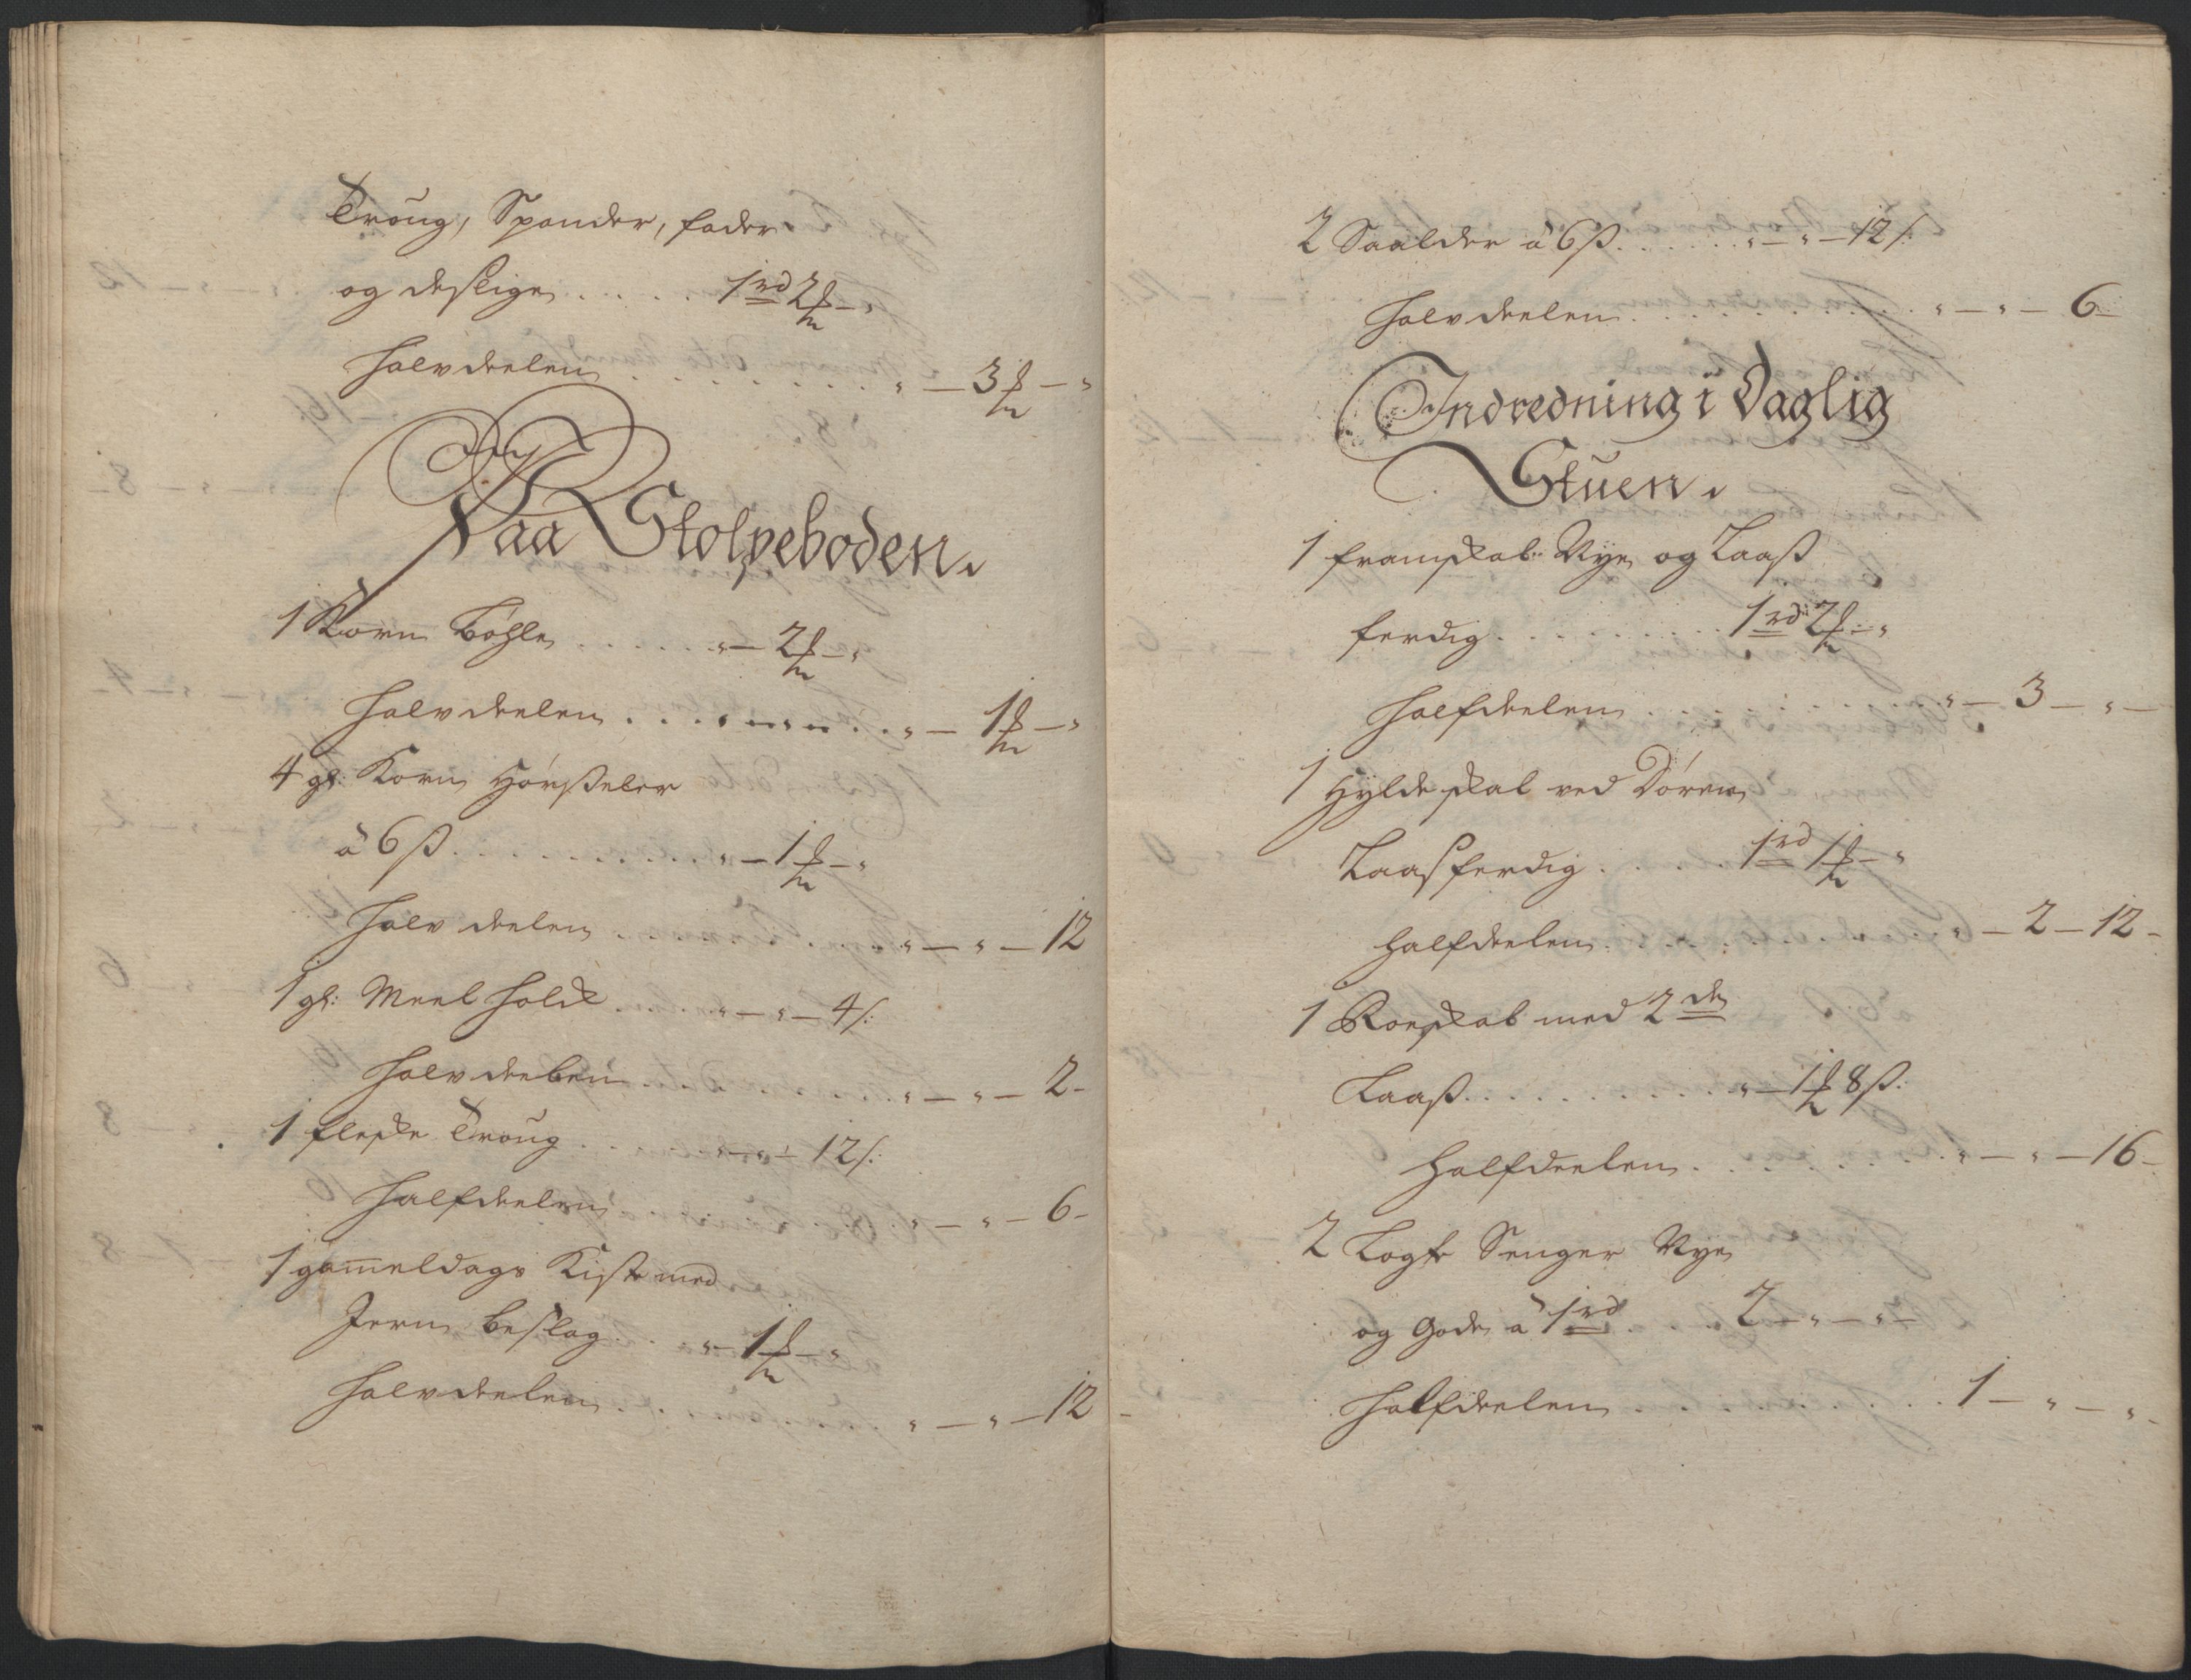 Troug, Spander, fader
og deslige . . . . . 1 rd 2 ₻ — "
Halvdeelen . . . . . . . . . " — 3 ₻ — "
Paa Stolpeboden.
1 Korn Böhle . . . . . . " — 2 ₻ — "
Halvdeelen . . . . . . . . " — 1 ₻ — "
4 gl: Korn Hörseler
à 6 ß . . . . . . . . . . " — 1 ₻ — "
Halv deelen . . . . . . . . " — " — 12
1 gl: Meel Holk . . . . " — " — 4 ß:
Halvdeelen . . . . . . . . " — " — 2 -
1 fleske Troug . . . . " — " — 12 ß:
Halfdeelen . . . . . . . . " — " — 6 -
1 gam̄eldags Kiste med
Jern beslag . . . " — 1 ₻ — "
Halvdeelen . . . . . . . . " — " — 12 -
2 Saalder à 6 ß . . . . . . " — " — 12 ß:
Halvdeelen . . . . . . . . . . " — " — 6 -
Indredning i Daglig
Stuen.
1 framskab Nye og Laaß
ferdig . . . . . . . . . 1 rd: 2 ₻ — "
Halfdeelen . . . . . . . . . . " — 3 — " —
1 Hyldeskal ved Dören
Laasferdig . . . . . 1 rd 1 ₻ — "
Halfdeelen . . . . . . . . . " — 2 — 12 -
1 Roeskab med 2 de
Laaß . . . . . . . . . . " — 1 ₻ 8 ß:
Halfdeelen . . . . . . . . . " — " — 16 -
2 Logte Senger Nye
og Gode à 1 rd . . . . 2 — " — " —
Halfdeelen . . . . . . . . . . 1 — " — " -